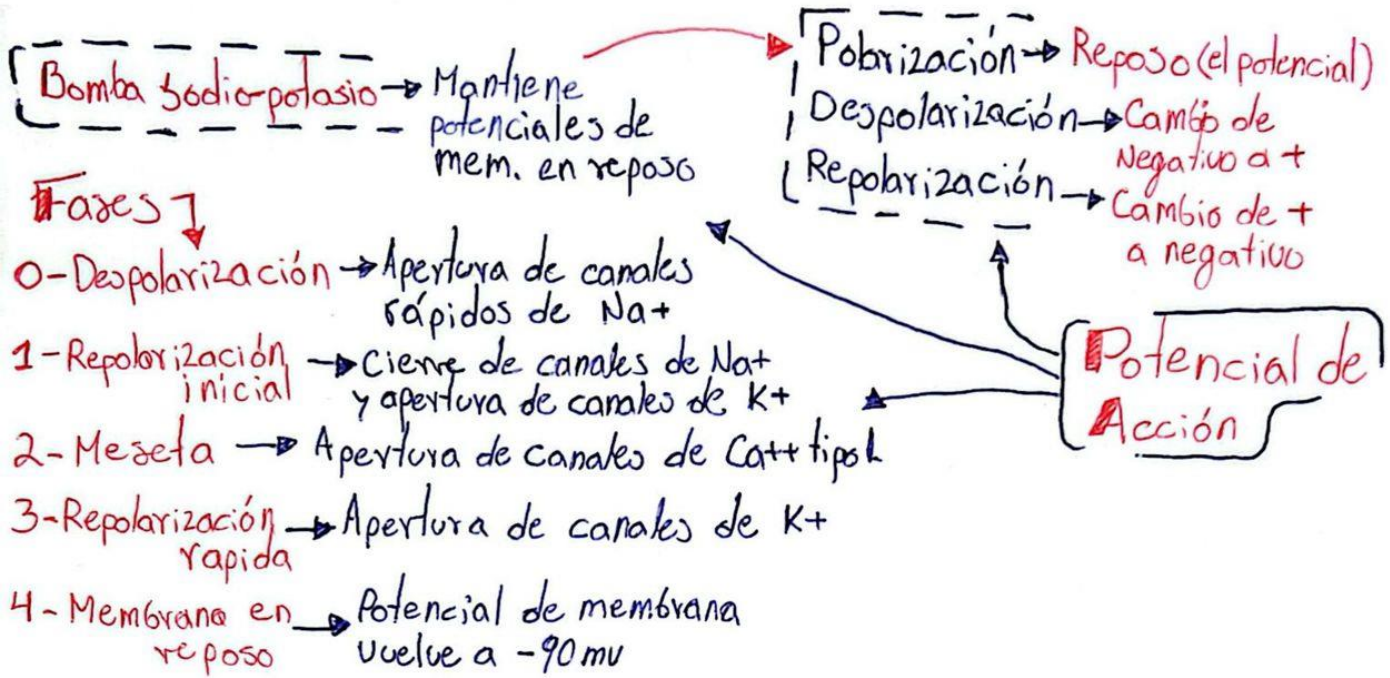 Bomba sodio-potasio → Mantiene
potenciales de
mem. en reposo
Polarización → Reposo (el potencial)
Despolarización → Cambio de
Negativo a +
Repolarización → Cambio de +
a negativo
Fases
0-Despolarización → Apertura de canales
rápidos de Na+
1-Repolorización → Cierre de canales de Na+
inicial y apertura de canales de K+
2-Meseta → Apertura de canales de Ca++ tipo L
3-Repolarización → Apertura de canales de K+
rapida
4-Membrana en → Potencial de membrana
reposo vuelve a -90 mv
Potencial de
Acción